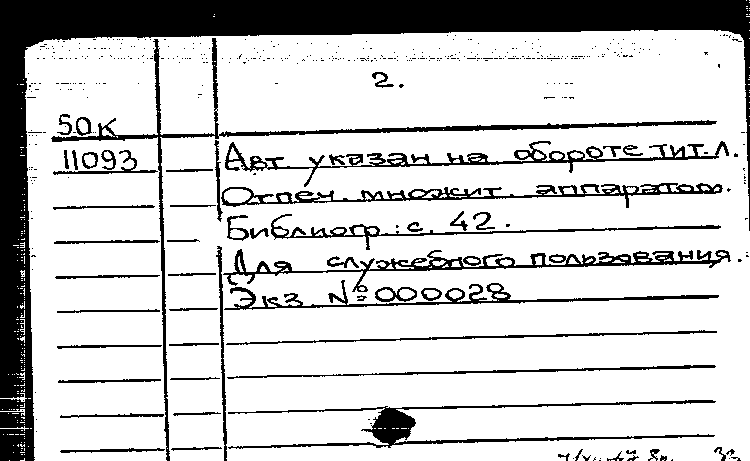 2.
50к
11093
Авт указан на обороте тит.л.
Отпеч. множит. аппаратом.
Библиогр.: с. 42.
Для служебного пользования.
Экз. №000028